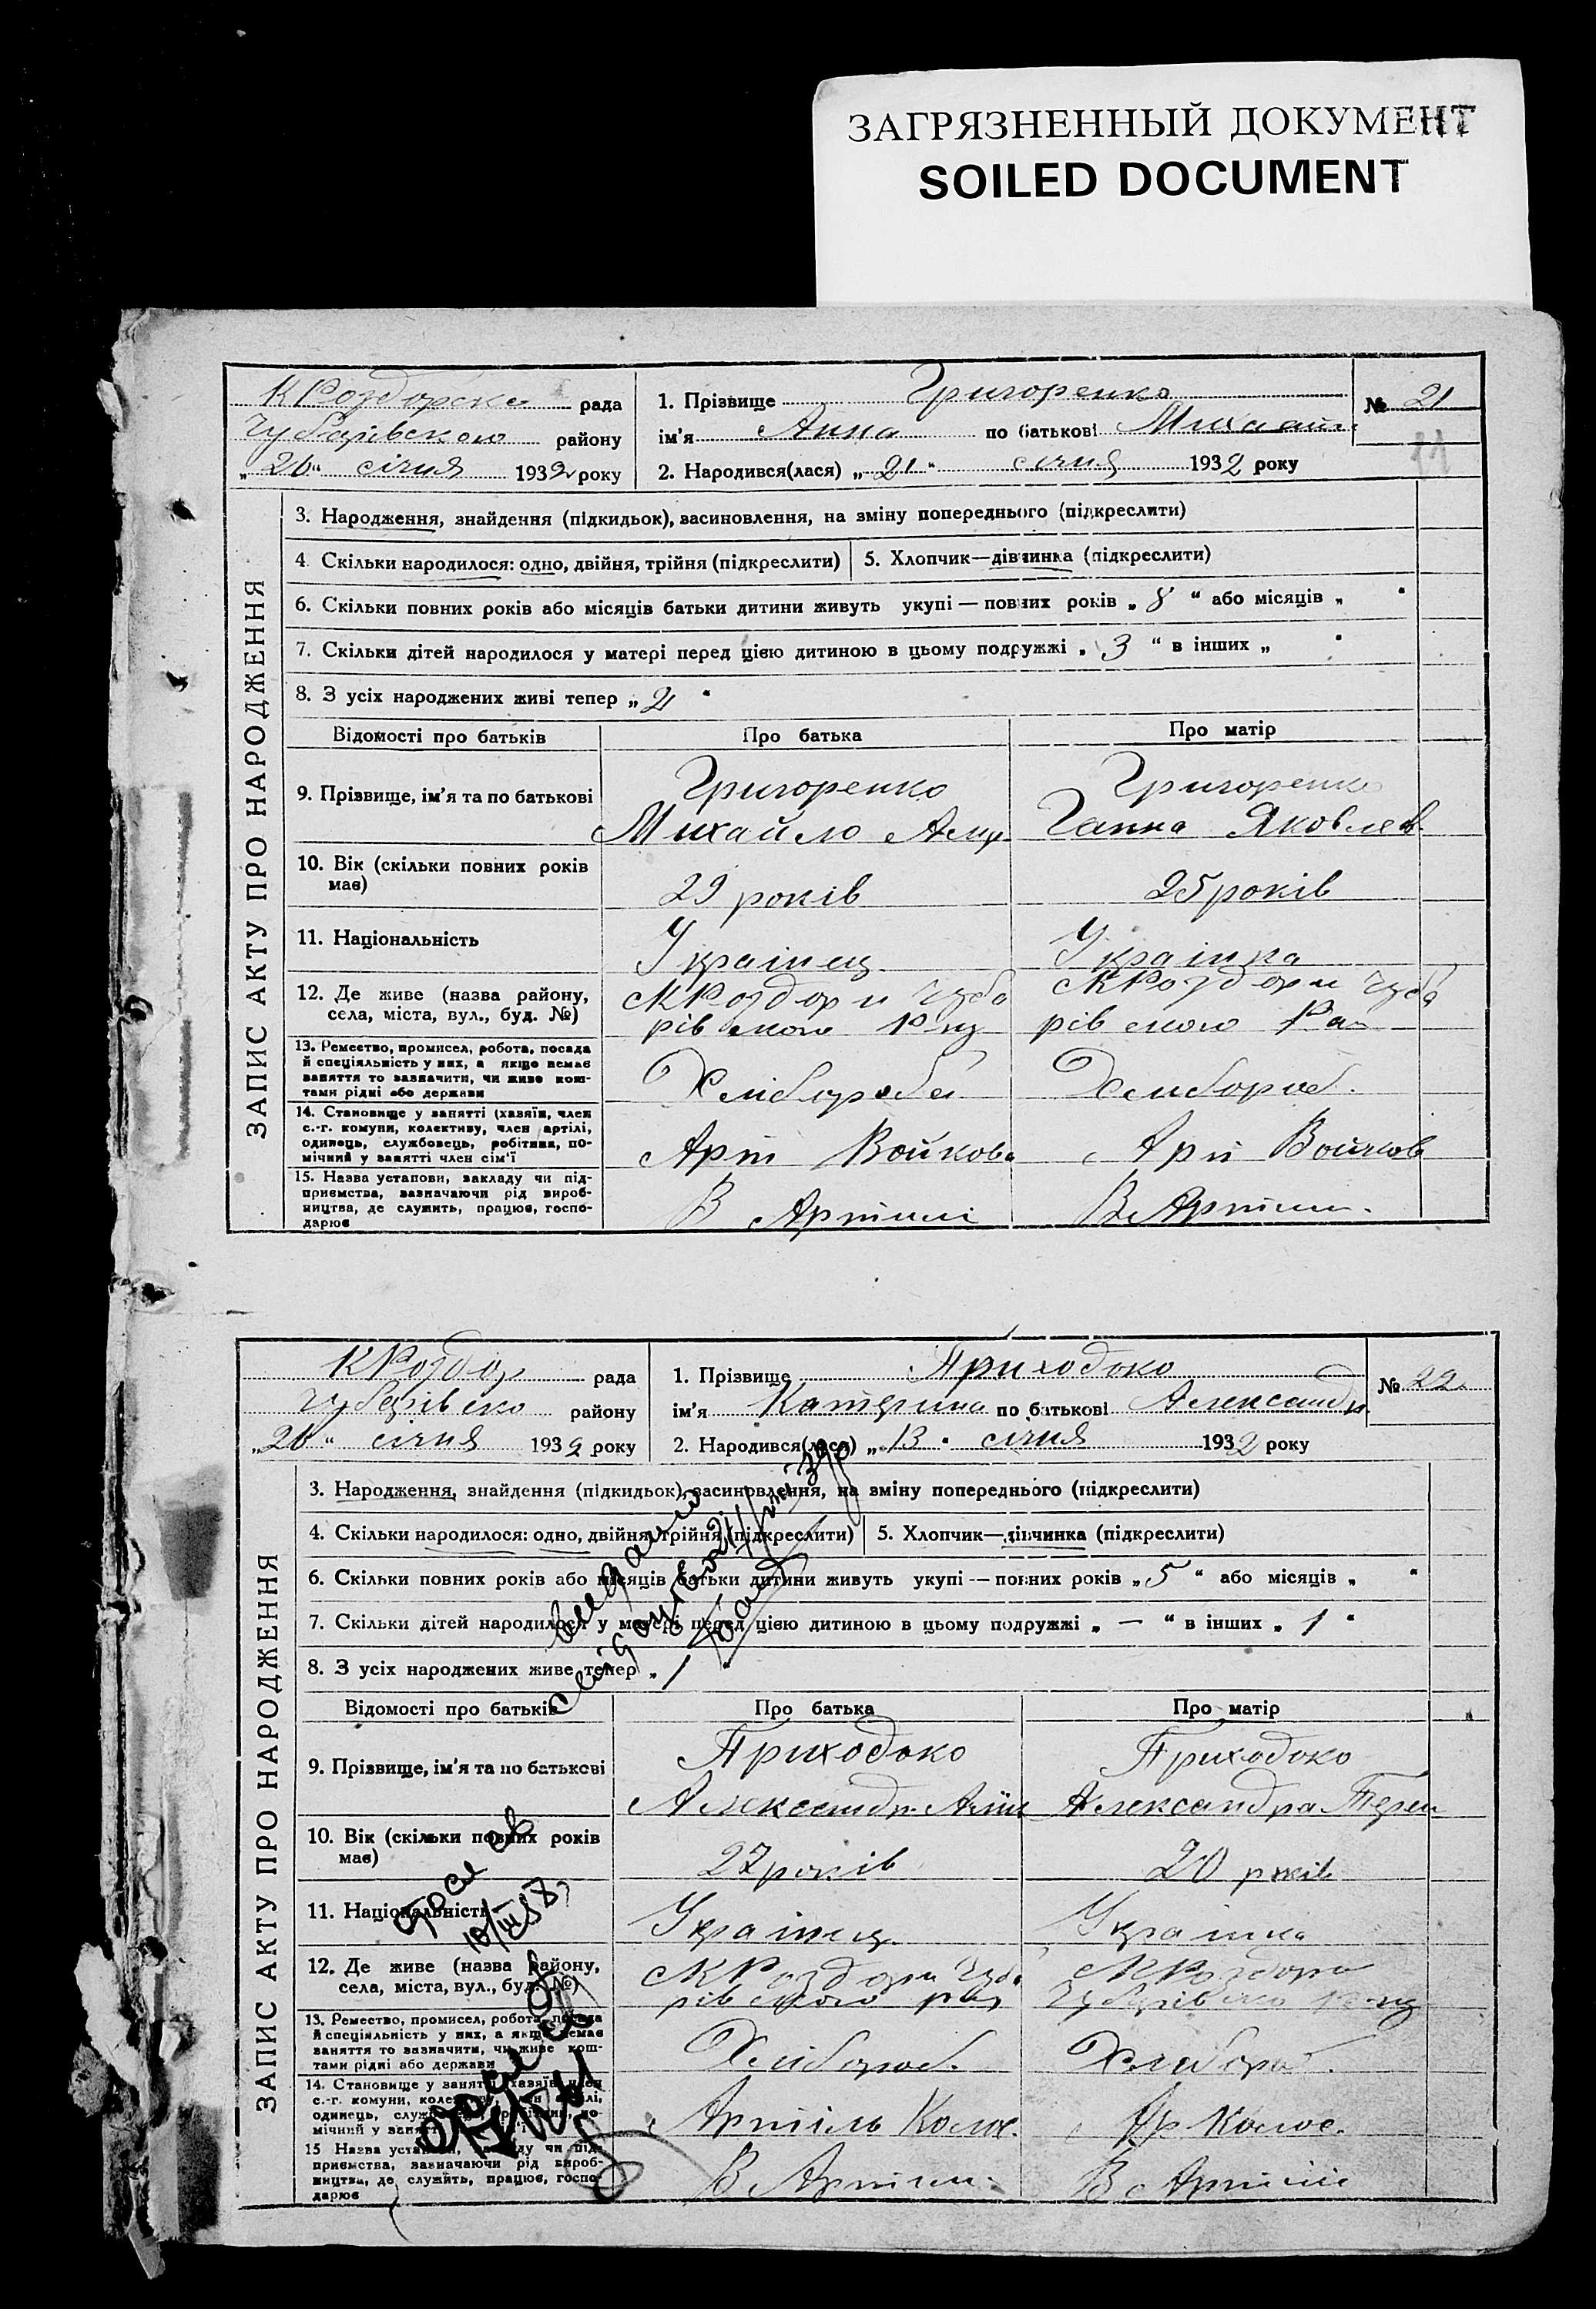 ЗАГРЯЗНЕННЫЙ ДОКУМЕНТ
SOILED DOCUMENT
ЗАПИС АКТУ ПРО НАРОДЖЕННЯ
К Роздорска рада
Чубарівского району
„26“ січня 1932 року
1. Прізвище Григоренко
№ 21
ім'я Анна по батькові Михайл.
2. Народився(лася) „21“ січня 1932 року
11
3. Народження, знайдення (підкидьок), засиновлення, на зміну попереднього (підкреслити)
4. Скільки народилося: одно, двійня, трійня (підкреслити) 5. Хлопчик—дівчинка (підкреслити)
6. Скільки повних років або місяців батьки дитини живуть укупі — повних років „8“ або місяців „ “
7. Скільки дітей народилося у матері перед цією дитиною в цьому подружжі „3“ в інших „ “
8. З усіх народжених живі тепер „2“
Відомості про батьків Про батька Про матір
9. Прізвище, ім'я та по батькові
Григоренко Григоренко
Михайло Ганна Яковлев.
10. Вік (скільки повних років має)
29 років 25 років
11. Національність
Українец Українка
12. Де живе (назва району, села, міста, вул., буд. №)
К Роздори Чуба К Роздори Чуба
рівского рівского
13. Ремество, промисел, робота, посада
й спеціяльність у них, а якщо немає
заняття то зазначити, чи живе кош-
тами рідні або держави
Хлібороб.
14. Становище у занятті (хазяїн, член
с.-г. комуни, колективу, член артілі,
одинець, службовець, робітник, по-
мічний у занятті член сім'ї
Арт Войкова Арт Войков
15. Назва установи, закладу чи під-
приємства, зазначаючи рід вироб-
ництва, де служить, працює, госпо-
дарює
В Артілі В Артіли.
ЗАПИС АКТУ ПРО НАРОДЖЕННЯ
К Роздор рада
Чубарівско району
„26“ січня 1932 року
1. Прізвище Приходько
№ 22
ім'я Катерина по батькові Александр.
2. Народився(лася) „13“ січня 1932 року
3. Народження, знайдення (підкидьок), засиновлення, на зміну попереднього (підкреслити)
4. Скільки народилося: одно, двійня, трійня (підкреслити) 5. Хлопчик—дівчинка (підкреслити)
6. Скільки повних років або місяців батьки дитини живуть укупі — повних років „5“ або місяців „ “
7. Скільки дітей народилося у матері перед цією дитиною в цьому подружжі „—“ в інших „1“
8. З усіх народжених живе тепер „1“
Відомості про батьків Про батька Про матір
9. Прізвище, ім'я та по батькові
Приходько Приходько
Александр Александра Терен
10. Вік (скільки повних років має)
27 років 20 років
11. Національність
Українец Українка
12. Де живе (назва району, села, міста, вул., буд. №)
К Роздори Чуба К Роздори
рівского Чубарівско
13. Ремество, промисел, робота, посада
й спеціяльність у них, а якщо немає
заняття то зазначити, чи живе кош-
тами рідні або держави
Хлібороб. Хлибороб.
14. Становище у занятті (хазяїн, член
с.-г. комуни, колективу, член артілі,
одинець, службовець, робітник, по-
мічний у занятті член сім'ї
Артіль Колос. Ар Колос.
15 Назва установи, закладу чи під-
приємства, зазначаючи рід вироб-
ництва, де служить, працює, госпо-
дарює
В Артіли. В Артілі